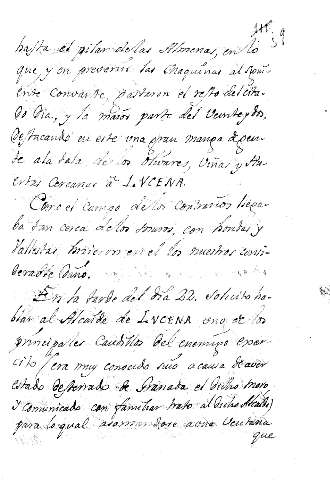 hasta el pilar de las Almenas, en lo
que, y en prevenir las Maquinas al Sigui-
ente Convate, pastaron el resto del cita-
do Dia, y la maior parte del Veinte y dos,
destacando en este una gran manga de gen-
te a la tala de los Olivares, Viñas y Hu-
ertas cercanas à LVCENA.
Como el campo de los contrarios llega-
ba tan cerca de los muros, con hondas y
Vallestas, hicieron en el los nuestros consi-
derable Daño.
En la tarde del dia 22. Solicito ha-
blar al Alcaide de LVCENA uno de los
principales Caudillos del enemigo exer-
cito (era muy conocido suio a causa de aver
estado desterrado de Granada el dicho moro,
y comunicado con familiar trato al dicho Alcaide)
para lo qual asomandose a una Ventana
que